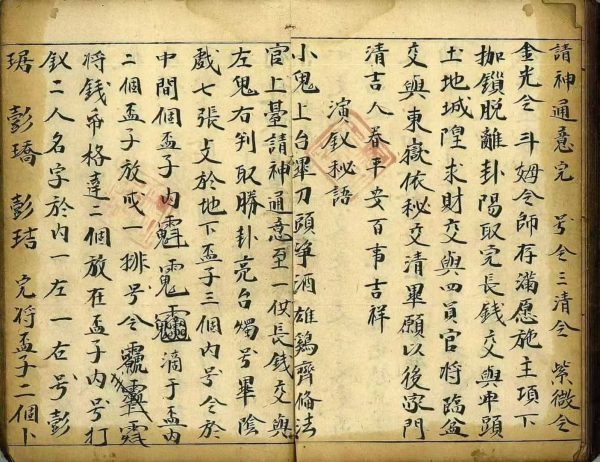 請神通意完 号令三清令 紫微令
金光令斗姆令師存滿愿施主項下
枷鎖脫離卦陽取完長錢交與冲顕
土地城隍求財交與四員官將臨盆
交與東嶽依秘交清畢願以後家門
清吉人眷平安百事吉祥
演釵秘語
小鬼上台畢刀頭净酒雄鷄齊俻法
官上臺請神通意至一伩長錢交與
左鬼右判取勝卦亮台燭号畢陰
戲七張攴於地下盃子三個内号令於
中間個盃子内 滴于盃内
二個盃子放成一排号令
將錢帋格達二個放在盃子内号打
釵二人名字於内一左一右号彭
琚 彭璚 彭琂 完将盃子二個卜